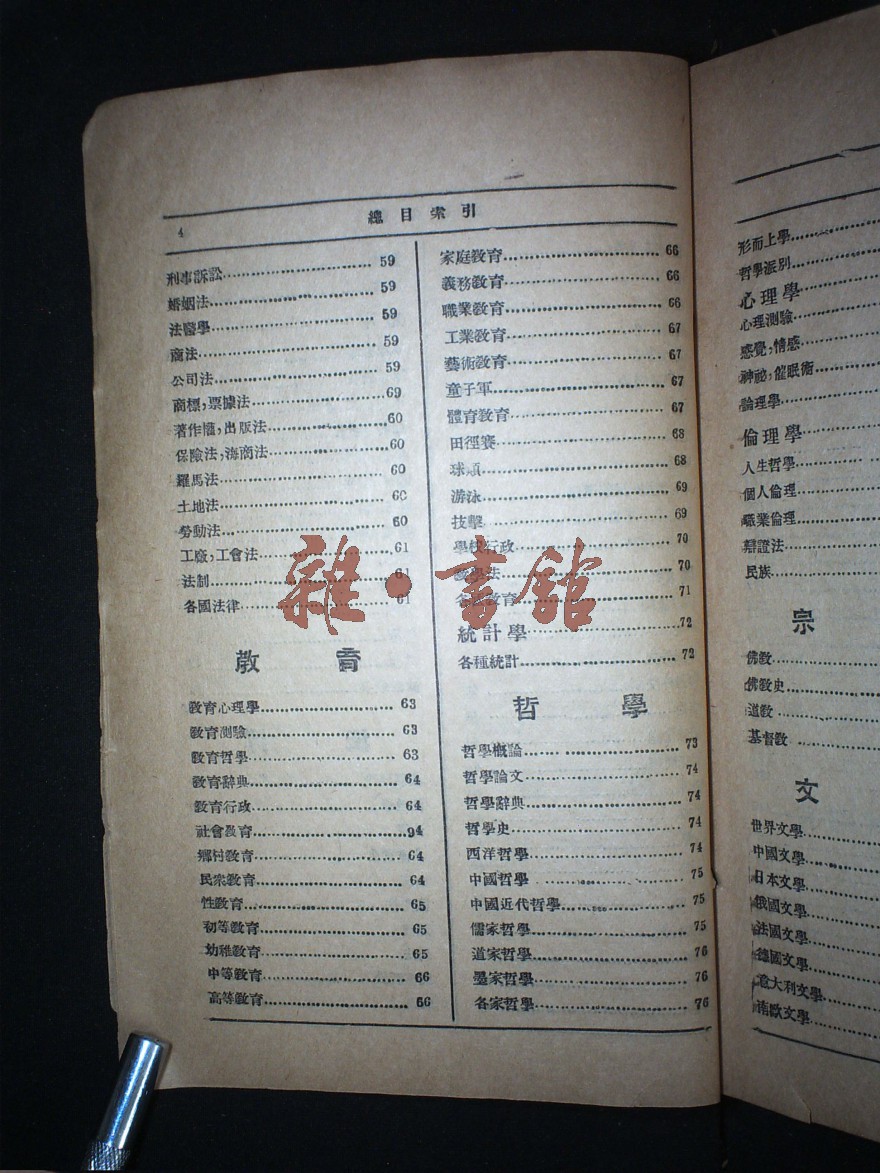 4
總目索引
刑事訴訟 59
婚姻法 59
法醫學 59
商法 59
公司法 59
商標,票據法 69
著作權,出版法 60
保險法,海商法 60
羅馬法 60
土地法 60
勞動法 60
工廠,工會法 61
法制 61
各國法律 61
教育
教育心理學 63
教育測驗 63
教育哲學 63
教育辭典 64
教育行政 64
社會教育 94
鄉村教育 64
民衆教育 64
性教育 65
初等教育 65
幼稚教育 65
中等教育 66
高等教育 66
家庭教育 66
義務教育 66
職業教育 66
工業教育 67
藝術教育 67
童子軍 67
體育教育 67
田徑賽 68
球類 68
游泳 69
技擊 69
學校行政 70
法 70
教育 71
統計學 72
各種統計 72
哲學
哲學概論 73
哲學論文 74
哲學辭典 74
哲學史 74
西洋哲學 74
中國哲學 75
中國近代哲學 75
儒家哲學 75
道家哲學 76
墨家哲學 76
各家哲學 76
形而上學
哲學派別
心理學
心理測驗
感覺,情感
神祕,催眠術
論理學
倫理學
人生哲學
個人倫理
職業倫理
辯證法
民族
宗
佛教
佛教史
道教
基督教
文
世界文學
中國文學
日本文學
俄國文學
法國文學
德國文學
意大利文學
南歐文學
雜·書館